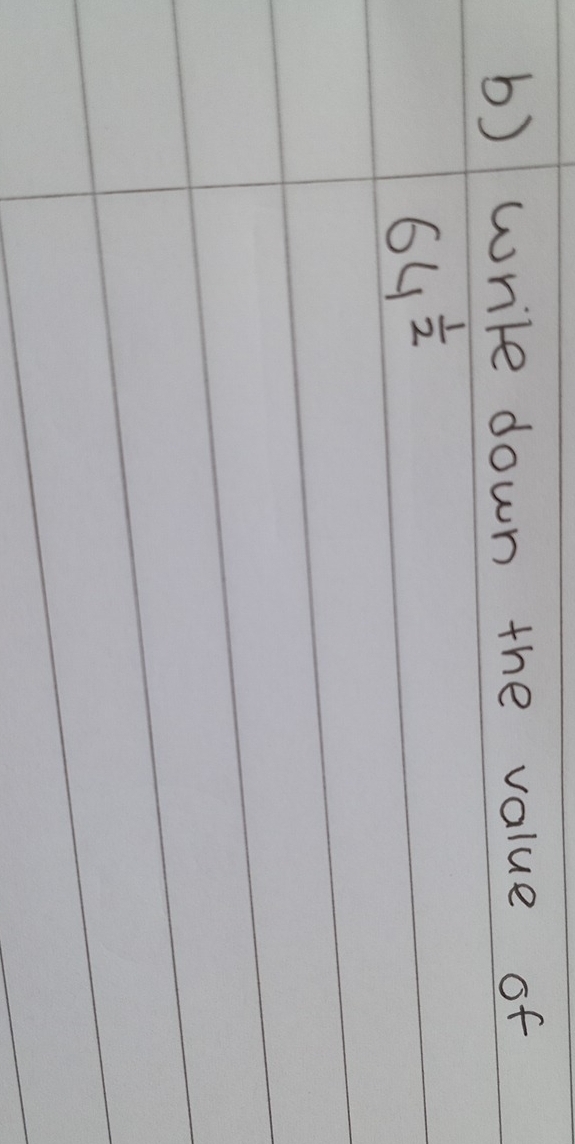 b) Write down the value of
64^{\frac{1}{2}}